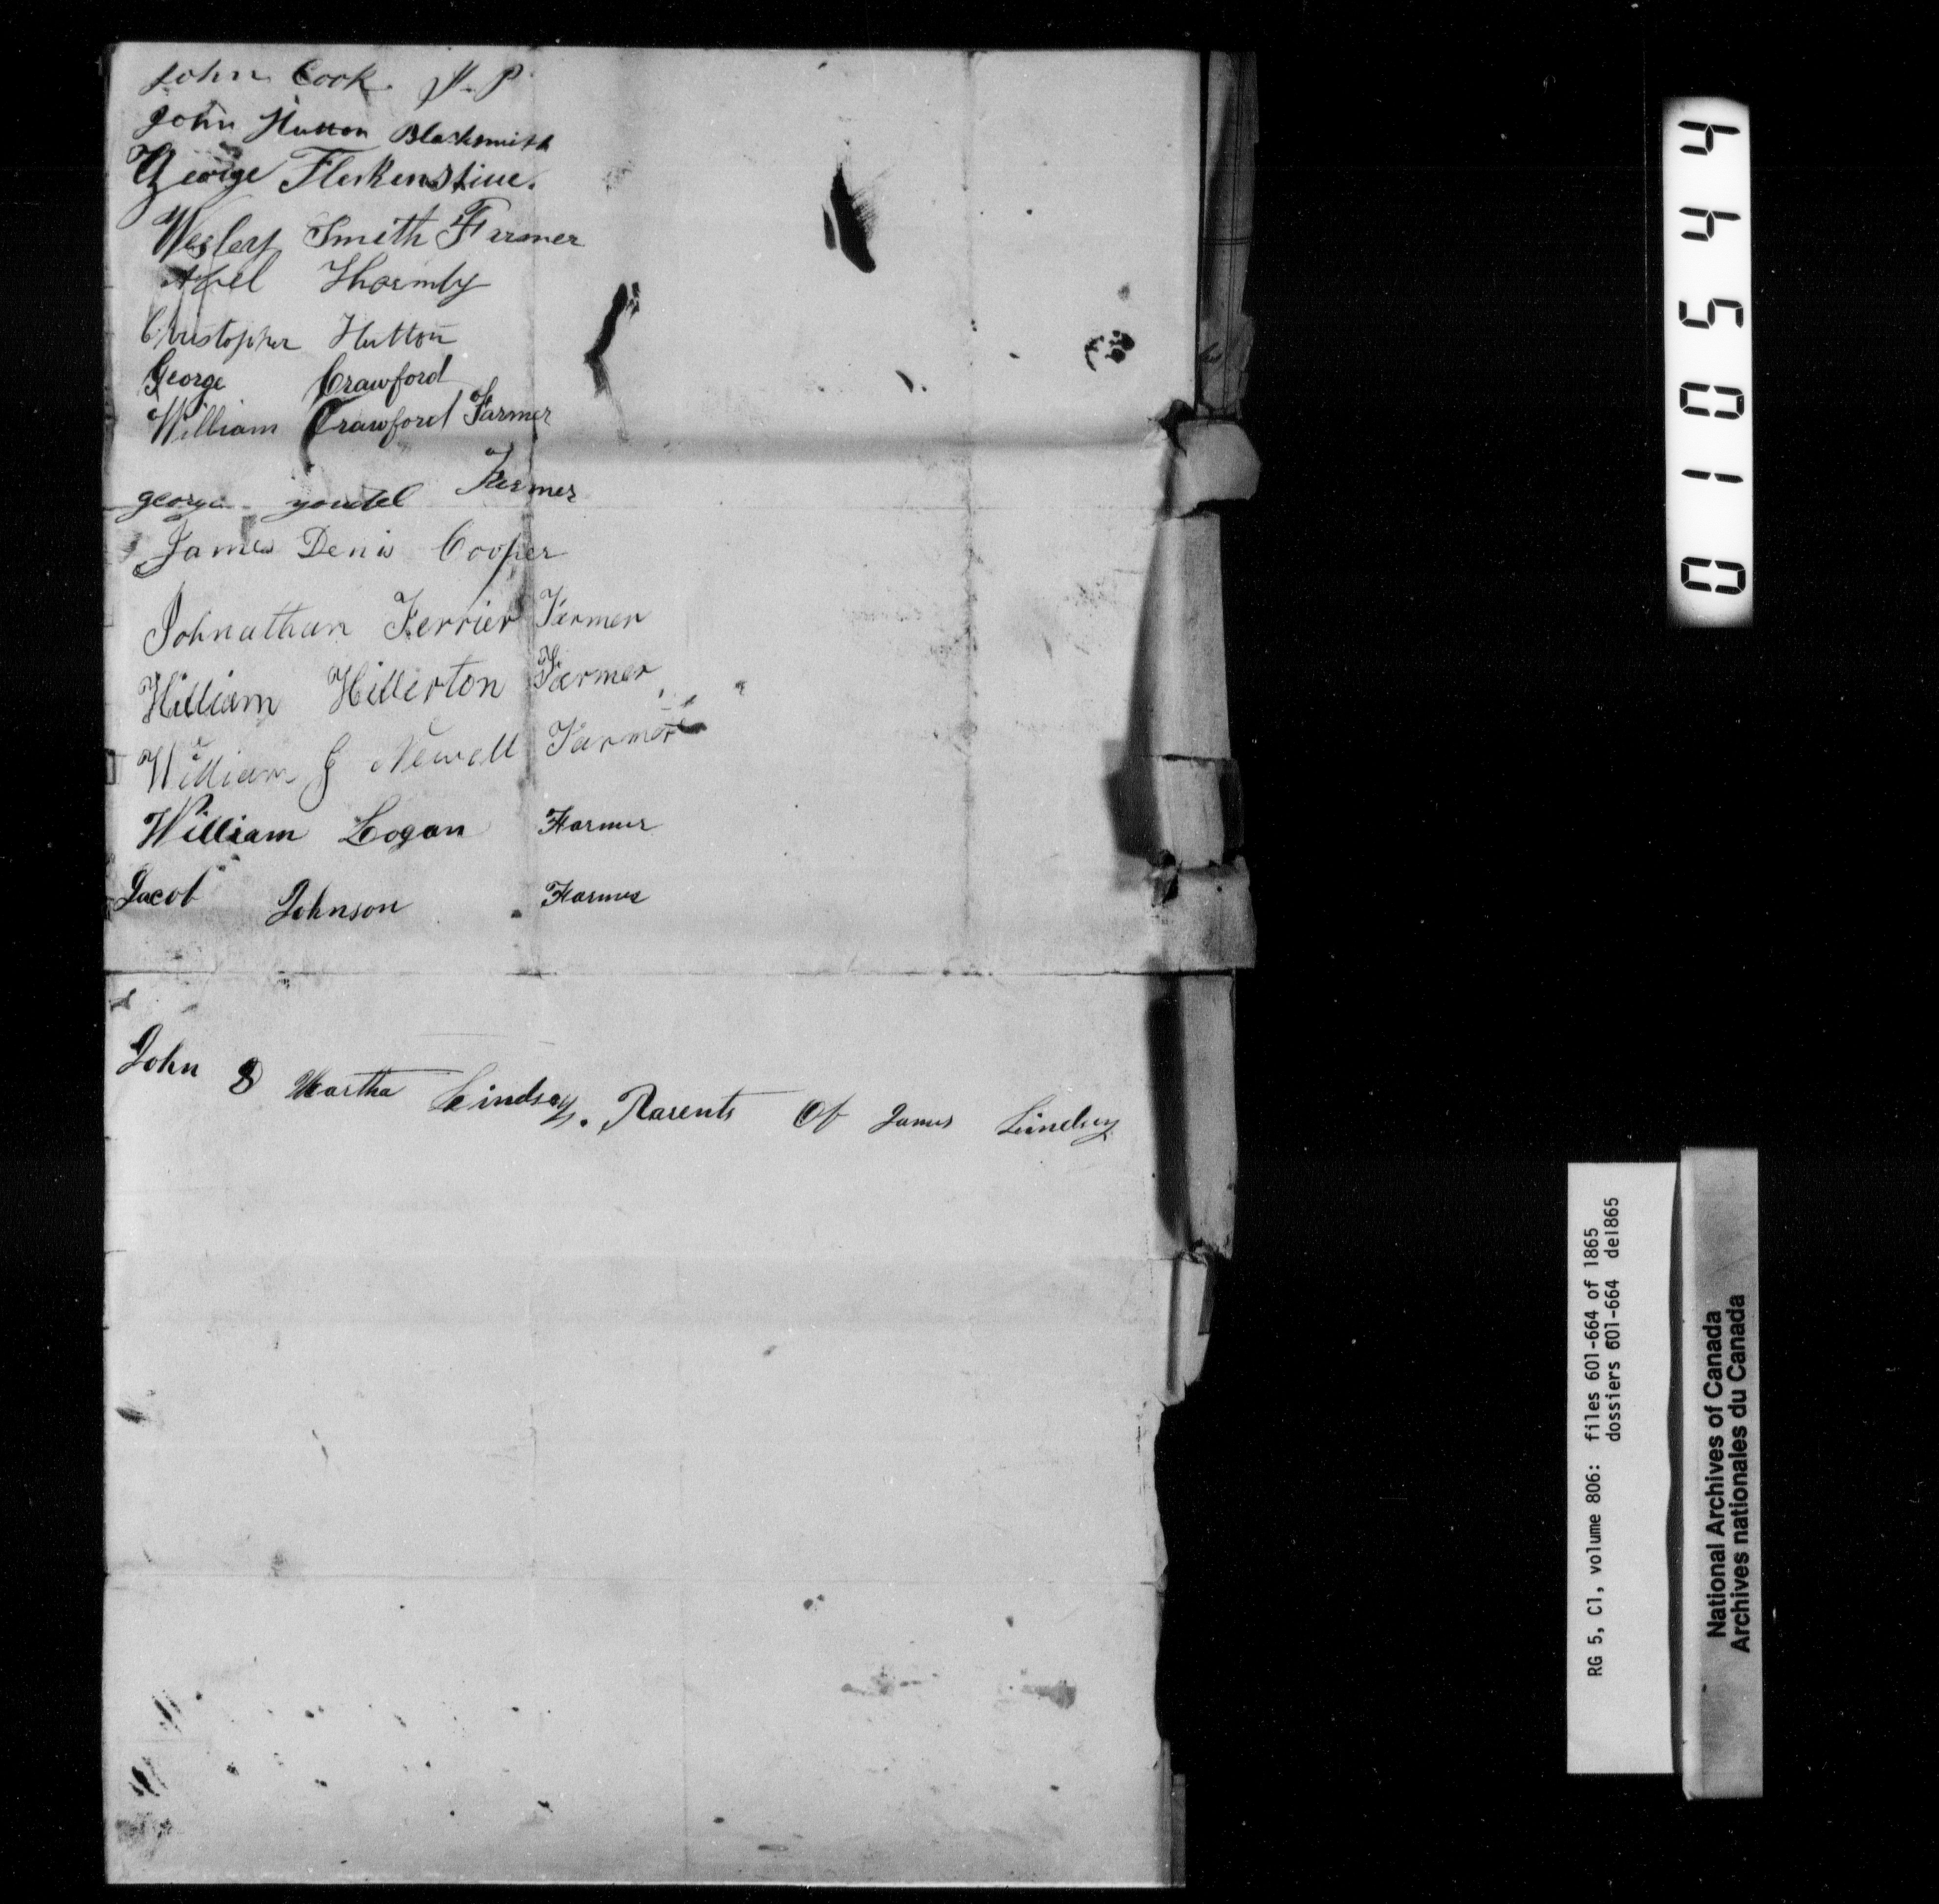 John Cook J. P
John Hutton Blacksmith
George Fleckenstine.
Wesley Smith Farmer
Abel Thormby
Christopher Hutton
George Crawford
William Crawford Farmer
george youdel Farmer
James Denis Cooper
Johnathan Ferrier Farmer
William Hillerton Farmer
William J Newell Farmer
William Logan Farmer
Jacob Johnson Farmer
John & Martha Lindsay. Parents Of James Lindsay
0105444
RG 5, C1, volume 806: files 601-664 of 1865
dossiers 601-664 de1865
National Archives of Canada
Archives nationales du Canada